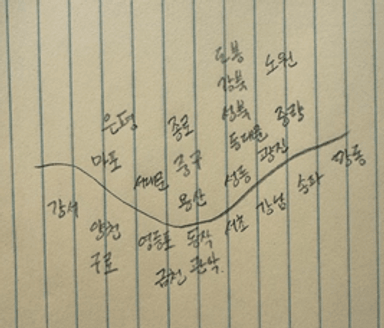 도봉
노원
강북
성북
중랑
은평
종로
동대문
광진
마포
서대문
중구
강동
성동
송파
용산
강남
강서
서초
양천
영등포
동작
구로
금천
관악